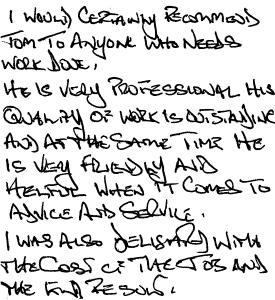 I WOULD CERTAINLY RECOMMEND
TOM TO ANYONE WHO NEEDS
WORK DONE.
HE IS VERY PROFESSIONAL HIS
QUALITY OF WORK IS OUTSTANDING
AND AT THE SAME TIME HE
IS VERY FRIENDLY AND
HELPFUL WHEN IT COMES TO
ADVICE AND SERVICE.
I WAS ALSO DELIGHTED WITH
THE COST OF THE JOB AND
THE END RESULT.